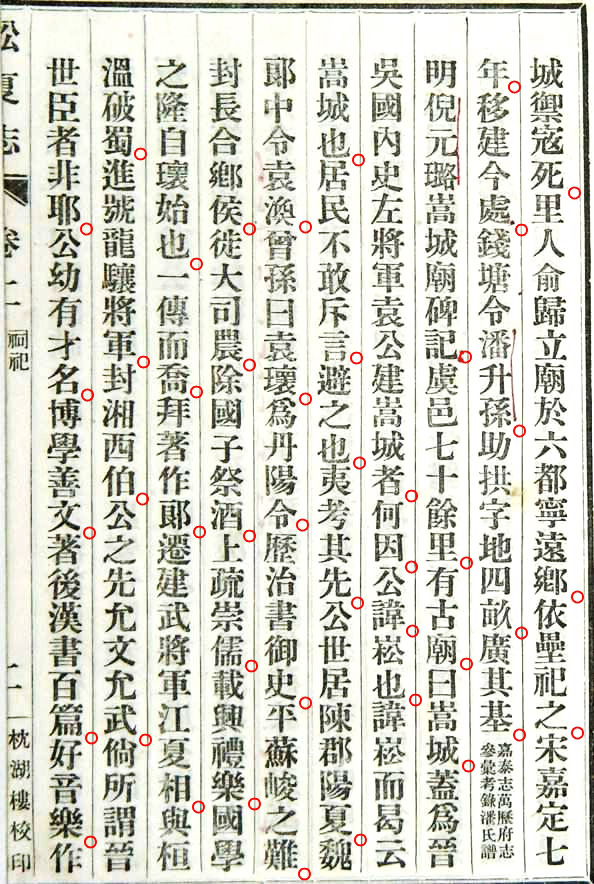 城禦寇死里人俞歸立廟於六都寧遠鄉依壘祀之宋嘉定七
年移建今處錢塘令潘升孫助拱字地四畝廣其基嘉泰志萬歷府志
參彙考錄潘氏譜
明倪元璐嵩城廟碑記虞邑七十餘里有古廟曰嵩城蓋為晉
吳國內史左將軍袁公建嵩城者何因公諱崧也諱崧而曷云
嵩城也居民不敢斥言避之也夷考其先公世居陳郡陽夏魏
郎中令袁渙曾孫曰袁瓌為丹陽令歷治書御史平蘇峻之難
封長合鄉侯徙大司農除國子祭酒上疏崇儒載興禮樂國學
之隆自瓌始也一傳而喬拜著作郎遷建武將軍江夏相與桓
溫破蜀進號龍驤將軍封湘西伯公之先允文允武倘所謂晉
世臣者非耶公幼有才名博學善文著後漢書百篇好音樂作
松夏志 卷二 祠祀 二 枕湖樓校印